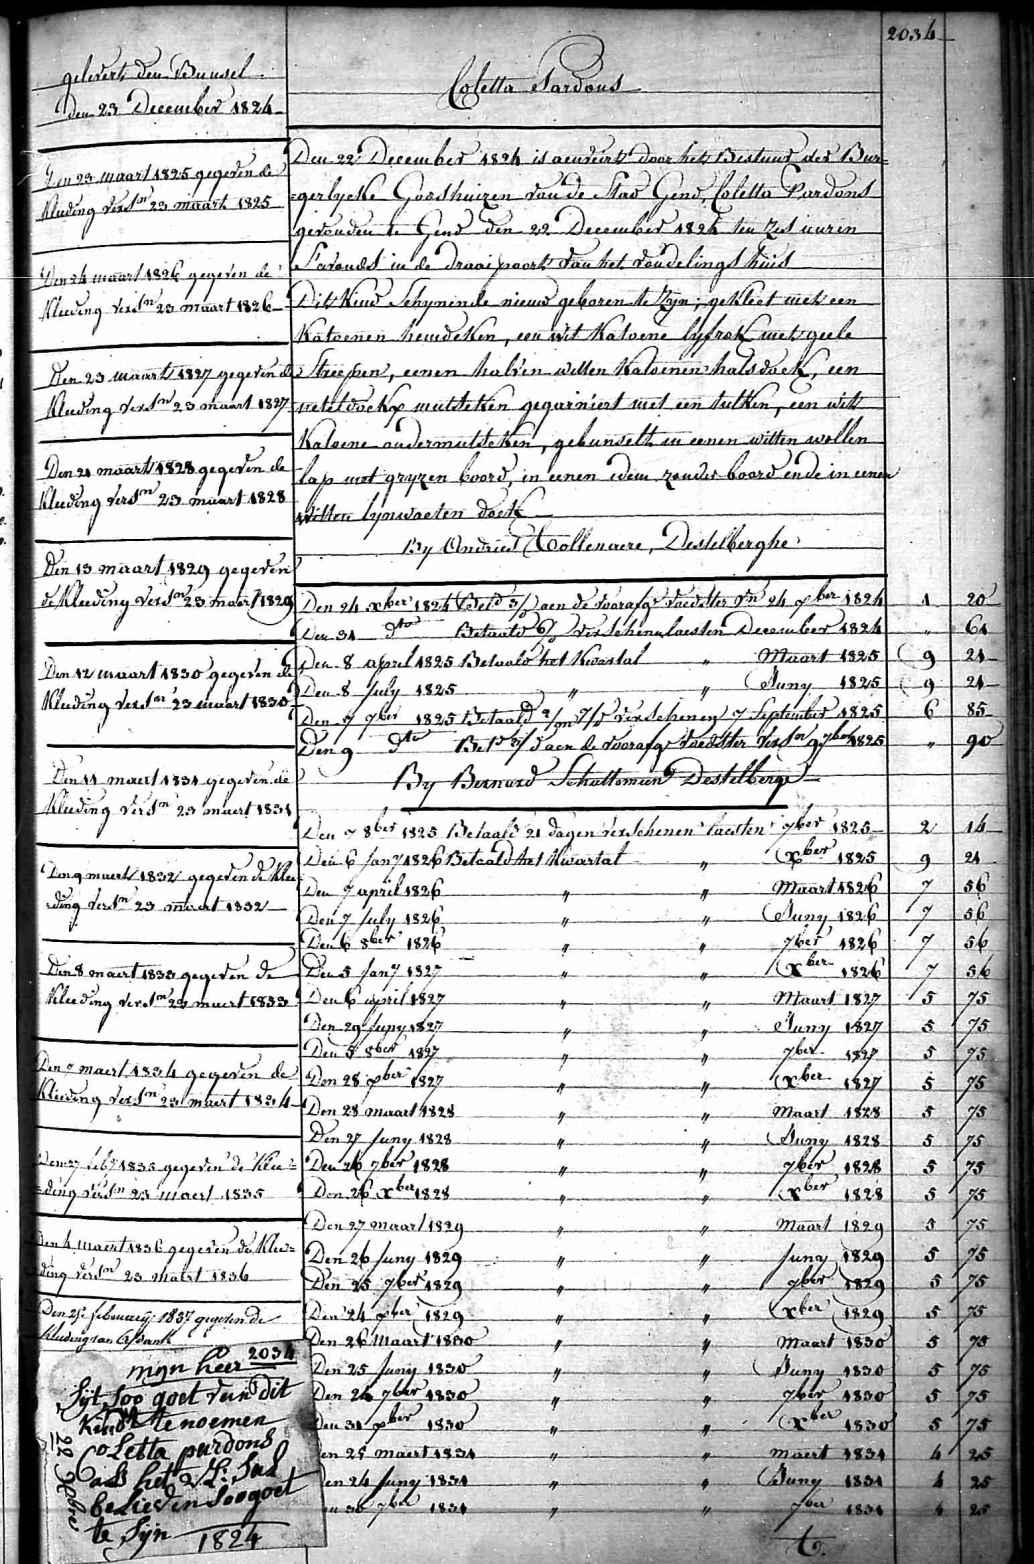 2034
gelevert den Bunsel
den 23 December 1824
Den 23 maart 1825 gegeven de
kleding versn 23 maart 1825
Den 24 maart 1826 gegeven de
Kleeding versn 23 maart 1826
Den 23 maart 1827 gegeven de
kleeding versn 23 maart 1827
Den 21 maart 1828 gegeven de
kleeding versn 23 maart 1828
Den 13 maart 1829 gegeven
de kleeding versn 23 maart 1829
Den 12 maart 1830 gegeven de
kleeding versn 23 maart 1830
Den 11 maert 1831 gegeven de
kleeding versn 23 maert 1831
Den 9 maert 1832 gegeven de klee
ding versn 23 maert 1832
Den 8 maert 1833 gegeven de
kleeding versn 23 maert 1833
Den 7 maert 1834 gegeven de
kleeding versn 23 maert 1834
Den 27 feby 1835 gegeven de klee=
=ding versn 23 maert 1835
Den 4 maert 1836 gegeven de klee=
ding versn 23 maert 1836
Den 25e february 1837 gegeven de
kleeding
mijn heer 2034
Sijt soo goet van dit
Kindt te noemen
Coletta purdons
als het UL: Sal
believen soo goet
te Sijn 1824
22 Xbre
Coletta Pardons
Den 22 December 1824 is aenveirt door het Bestuur der Bur=
=gerlycke Godshuizen van de Stad Gend, Coletta Pardons
gevonden te Gend den 22 December 1824 ten zes uuren
s'avonds in de draaipoort van het vondelings huis
Dit Kind schynende nieuw geboren te zyn; gekleet met een
Katoenen hemdeken, een wit Katoene lyfrok met geele
streepen, eenen halven witten Katoenen halsdoek, een
neteldoekx mutsteken gegarniert met een tulken, een wit
Katoene ondermutsteken, gebunselt in eenen witten wollen
lap met gryzen boord, in eenen idem zonder boord ende in eenen
witten lynwaeten doek
By Andries Tollenaere, Destelberghe
Den 24 xber 1824 Betd 3/ aen de voorafge voedster vn 24 xber 1824 1 20
Den 31 dto Betaald verschenen laesten December 1824 " 61
Den 8 april 1825 Betaald het Kwartal " Maart 1825 9 21
Den 8 July 1825 " " Juny 1825 9 21
Den 7 7ber 1825 Betaald verschenen 7 September 1825 6 85
Den 9 dto Betd aen de voorafge voedster versn 9 7ber 1825 " 90
By Bernard Schatteman Destelberge
Den 7 8ber 1825 Betaald 21 dagen verschenen laesten 7ber 1825 2 14
Den 6 Jany 1826 Betaald het Kwartal " Xber 1825 9 21
Den 7 april 1826 " " Maart 1826 7 56
Den 7 July 1826 " " Juny 1826 7 56
Den 6 8ber 1826 " " 7ber 1826 7 56
Den 5 Jany 1827 " " Xber 1826 7 56
Den 6 april 1827 " " Maart 1827 5 75
Den 29 Juny 1827 " " Juny 1827 5 75
Den 5 8ber 1827 " " 7ber 1827 5 75
Den 28 xber 1827 " " Xber 1827 5 75
Den 28 maart 1828 " " Maart 1828 5 75
Den 27 Juny 1828 " " Juny 1828 5 75
Den 26 7ber 1828 " " 7ber 1828 5 75
Den 26 Xber 1828 " " Xber 1828 5 75
Den 27 maart 1829 " " Maart 1829 5 75
Den 26 Juny 1829 " " Juny 1829 5 75
Den 25 7ber 1829 " " 7ber 1829 5 75
Den 24 xber 1829 " " Xber 1829 5 75
Den 26 Maart 1830 " " Maart 1830 5 75
Den 25 Juny 1830 " " Juny 1830 5 75
Den 24 7ber 1830 " " 7ber 1830 5 75
Den 31 xber 1830 " " Xber 1830 5 75
Den 25 maert 1831 " " Maert 1831 4 25
Den 24 Juny 1831 " " Juny 1831 4 25
Den 30 7ber 1831 " " 7ber 1831 4 25